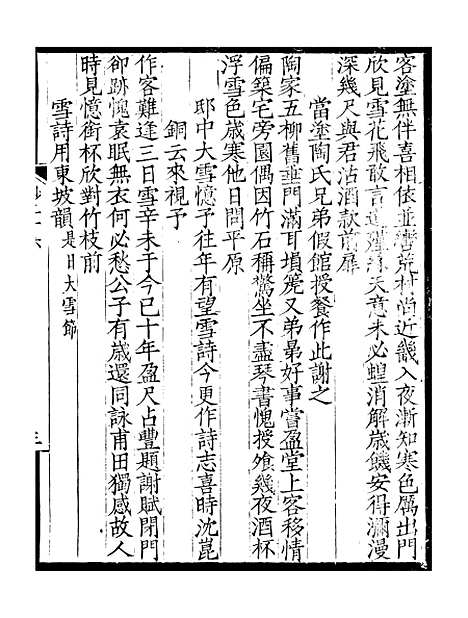 客塗無伴喜相依並濟荒村尚近畿入夜漸知寒色厲出門
欣見雪花飛敢言遠天意未必蝗消解歲饑安得瀰漫
深幾尺與君沽酒款前扉
當塗陶氏兄弟假館授餐作此謝之
陶家五柳舊垂門滿耳塤篪又弟昆好事嘗盈堂上客移情
偏築宅旁園偶因竹石稱驚坐不盡琴書愧授飧幾夜酒杯
浮雪色歲寒他日閙平原
邸中大雪憶予往年有望雪詩今更作詩志喜時沈崑
銅云來視予
作客難逢三日雪辛未于今已十年盈尺占豐題謝賦閉門
卻跡愧袁眠無衣何必愁公子有歲還同詠甫田獨感故人
時見憶銜杯欣對竹枝前
雪詩用東坡韻是日大雪節
三